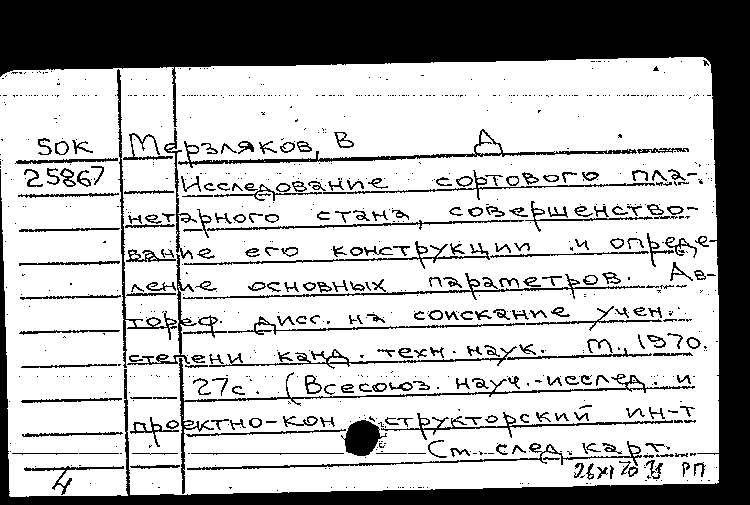 50К Мерзляков, В Д
25867 Исследование сортового пла-
нетарного стана, совершенство-
вание его конструкции и опреде-
ление основных параметров. Ав-
тореф. дисс. на соискание учен.
степени канд. техн. наук. М., 1970.
27с. (Всесоюз. науч.-исслед. и
проектно-конструкторский ин-т
См. след. карт.
4 РП